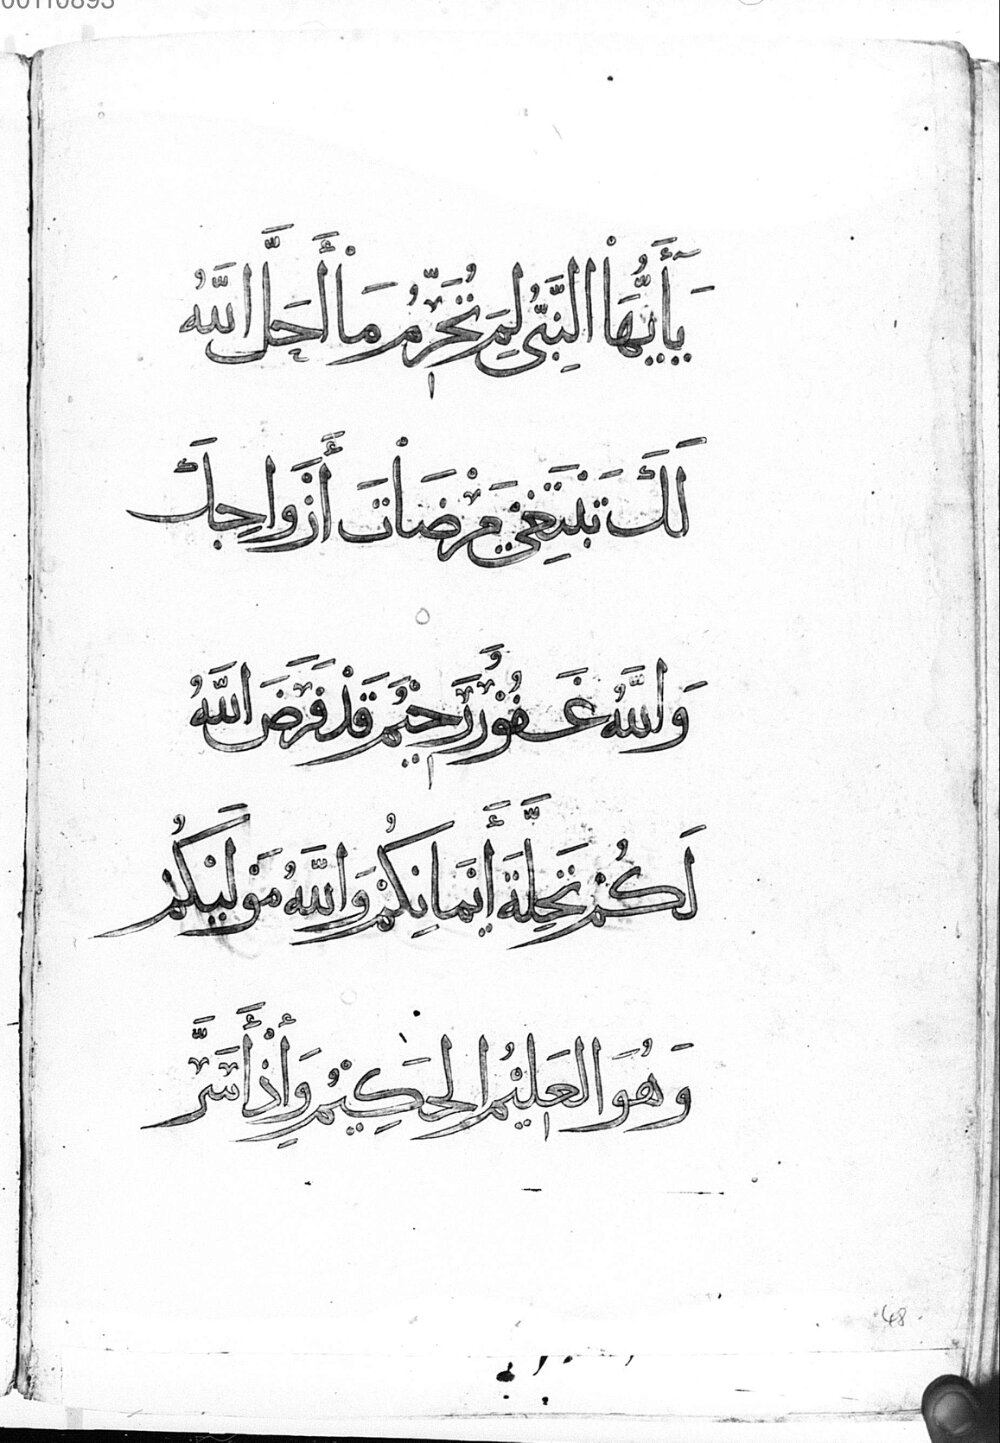 00110893
يَٰٓأَيُّهَا النَّبِيُّ لِمَ تُحَرِّمُ مَا أَحَلَّ اللَّهُ
لَكَ تَبْتَغِي مَرْضَاتَ أَزْوَاجِكَ
وَاللَّهُ غَفُورٌ رَحِيمٌ قَدْ فَرَضَ اللَّهُ
لَكُمْ تَحِلَّةَ أَيْمَانِكُمْ وَاللَّهُ مَوْلَيٰكُمْ
وَهُوَ الْعَلِيمُ الْحَكِيمُ وَإِذْ أَسَرَّ
48